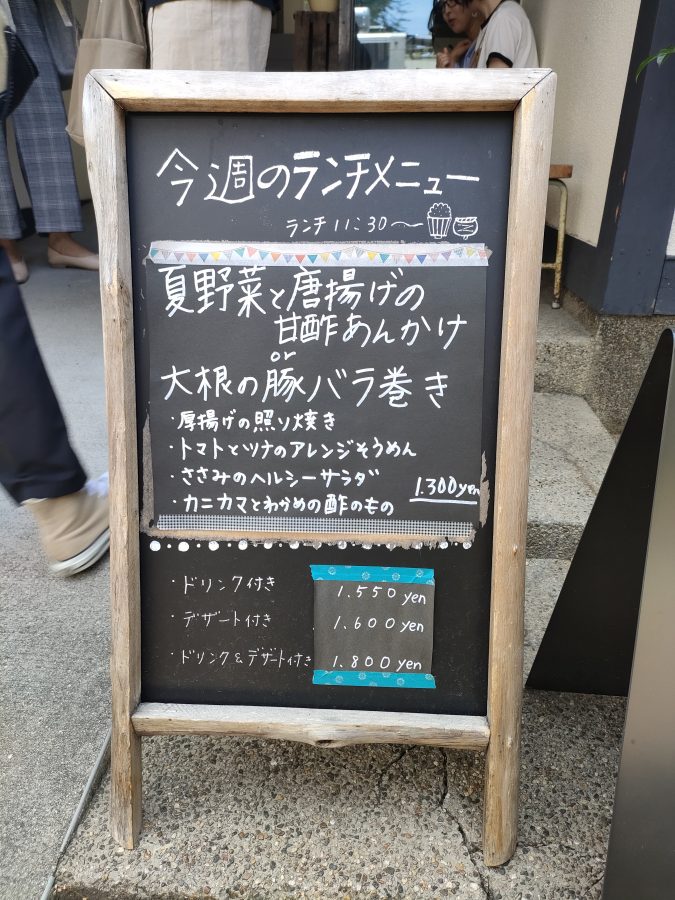 今週のランチメニュー
ランチ 11:30〜
夏野菜と唐揚げの
甘酢あんかけ
or
大根の豚バラ巻き
・厚揚げの照り焼き
・トマトとツナのアレンジそうめん
・ささみのヘルシーサラダ
・カニカマとわかめの酢のもの
1.300yen
・ドリンク付き 1.550 yen
・デザート付き 1.600 yen
・ドリンク&デザート付き 1.800 yen